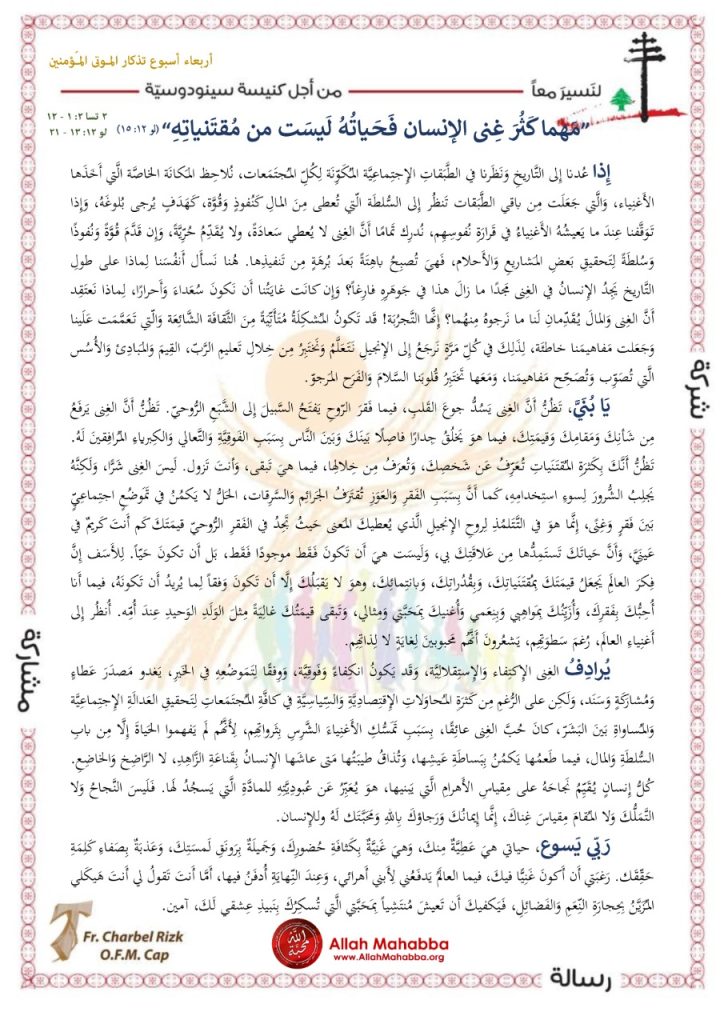 أربعاء أسبوع تذكار الموتى المؤمنين
لنَسيرَ معاً
من أجل كنيسة سينودوسيّة
٢ تسا ٢: ١ - ١٢
لو ١٢: ١٣ - ٢١
”مَهما كَثُرَ غِنى الإنسان فَحَياتُهُ لَيسَت من مُقتَنياتِهِ“ (لو ١٢: ١٥)
إِذا عُدنا إلى التَّاريخ وَنَظَرنا في الطَّبَقاتِ الإجتِماعِيَّة المُكَوِّنَة لِكُلِّ المُجتَمَعات، نُلاحِظ المَكانَة الخاصَّة الَّتي أَخَذَها
الأَغنِياء، وَالَّتي جَعَلَت مِن باقي الطَّبَقات تَنظُر إلى السُّلطَة الَّتي تُعطى مِنَ المالِ كَنُفوذٍ وَقُوَّة، كَهَدَفٍ يُرجى بُلوغَهُ، وَإذا
تَوَقَّفنا عِندَ ما يَعيشُهُ الأَغنِياءُ في قَرارَةِ نُفوسِهِم، نُدرِك تَمامًا أَنَّ الغِنى لا يُعطي سَعادَةً، ولا يُقَدِّمُ حُرِّيَّةً، وَإن قَدَّمَ قُوَّةً وَنُفوذًا
وَسُلطَةً لِتَحقيقِ بَعضِ المَشاريعِ وَالأَحلام، فَهِيَ تُصبِحُ باهِتَةً بَعدَ بُرهَةٍ مِن تَنفيذِها. هُنا نَسأَل أَنفُسَنا لِماذا على طولِ
التَّاريخ يَجِدُ الإنسانُ في الغِنى مَجدًا ما زالَ هذا في جَوهَرِهِ فارِغاً؟ وَإن كانَت غايَتُنا أَن نَكونَ سُعَداءَ وَأحرارًا، لِماذا نَعتَقِد
أَنَّ الغِنى وَالمالَ يُقَدِّمانِ لَنا ما نَرجوهُ مِنهُما؟ إِنَّها التَّجرُبَة! قَد تَكونُ المُشكِلَةُ مُتَأَتِّيَةً مِنَ الثَّقافَة الشَّائِعَة وَالَّتي تَعَمَّمَت عَلَينا
وَجَعَلَت مَفاهيمَنا خاطِئَة، لِذلِكَ في كُلِّ مَرَّة نَرجَعُ إلى الإنجيل نَتَعَلَّمُ وَنَختَبِرُ مِن خِلالِ تَعليمِ الرَّبّ، القِيَمَ وَالمَبادِئ وَالأُسُس
الَّتي تُصَوِّب وَتُصَحِّح مَفاهيمَنا، وَمَعَها تَختَبِرُ قُلوبَنا السَّلامَ وَالفَرَح المَرجوّ.
يَا بُنَيَّ، تَظُنُّ أَنَّ الغِنى يَسُدُّ جوعَ القَلبِ، فيما فَقرَ الرّوحِ يَفتَحُ السَّبيلَ إلى الشَّبَعِ الرُّوحيّ. تَظُنُّ أَنَّ الغِنى يَرفَعُ
مِن شَأنِكَ وَمَقامِكَ وَقيمَتِكَ، فيما هو يَخلُقُ جِدارًا فاصِلًا بَينَكَ وَبَينَ النَّاس بِسَبَبِ الفَوقِيَّةِ وَالتَّعالي وَالكِبرياءِ المُرافِقينَ لَهُ.
تَظُنُّ أَنَّكَ بِكَثرَةِ المُقتَنَياتِ تُعَرِّفُ عَن شَخصِكَ، وَتُعرَفُ مِن خِلالِها، فيما هِيَ تَبقى، وَأنتَ تَزول. لَيسَ الغِنى شَرًّا، وَلَكِنَّهُ
يَجلِبُ الشُّرورَ لِسوءِ استِخدامِهِ، كَما أَنَّ بِسَبَبِ الفَقرِ وَالعَوَزِ تُقتَرَفُ الجَرائِمَ وَالسَّرِقات، الحَلُّ لا يَكمُنُ في تَمَوضُعٍ اجتِماعِيٍّ
بَينَ فَقرٍ وَغِنًى، إِنَّما هوَ في التَّتَلمُذِ لِروحِ الإنجيلِ الَّذي يُعطيكَ المَعنى حَيثُ تَجِدُ في الفَقرِ الرُّوحيّ قيمَتَكَ كَم أَنتَ كَريمٌ في
عَينَيَّ، وَأَنَّ حَياتَكَ تَستَمِدُّها مِن عَلاقَتِكَ بي، وَلَيسَت هِيَ أَن تَكونَ فَقَط مَوجودًا فَقَط، بَل أَن تَكونَ حَيّاً. لِلأَسَف إِنَّ
فِكرَ العالَمِ يَجعَلُ قيمَتَكَ بِمُقتَنَياتِكَ، وَبِقُدُراتِكَ، وَبِانتِمائِكَ، وهوَ لا يَقبَلُكَ إِلَّا أَن تَكونَ وَفقاً لِما يُريدُ أَن تَكونَهُ، فيما أَنا
أُحِبُّكَ بِفَقرِكَ، وَأُزَيِّنُكَ بِمَواهِبي وَبِنِعَمي وَأُغنيكَ بِمَحَبَّتي وَمِثالي، وَتَبقى قيمَتُكَ غالِيَةً مِثلَ الوَلَدِ الوَحيدِ عِندَ أُمِّه. أُنظُر إلى
أَغنِياءِ العالَم، رُغمَ سَطوَتِهِم، يَشعُرونَ أَنَّهُم مَحبوبينَ لِغايَةٍ لا لِذاتِهِم.
يُرادِفُ الغِنى الإكتِفاءَ وَالإستِقلالِيَّة، وَقَد يَكونُ انكِفاءً وَفَوقِيَّة، وَوِفقًا لِتَمَوضُعِهِ في الخَيرِ، يَغدو مَصدَرَ عَطاءٍ
وَمُشارَكَةٍ وَسَنَد، وَلَكِن على الرُّغمِ مِن كَثرَةِ المُحاوَلاتِ الإقتِصادِيَّةِ وَالسِّياسِيَّةِ في كافَّةِ المُجتَمَعات لِتَحقيقِ العَدالَةِ الإجتِماعِيَّةِ
وَالمُساواةِ بَينَ البَشَر، كانَ حُبَّ الغِنى عائِقًا، بِسَبَبِ تَمَسُّكِ الأَغنِياءَ الشَّرِس بِثَرواتِهِم، لِأَنَّهُم لَم يَفهَموا الحَياةَ إِلَّا مِن بابِ
السُّلطَةِ وَالمال، فيما طَعمُها يَكمُنُ بِبَساطَةِ عَيشِها، وَتُذاقُ طيبَتُها مَتى عاشَها الإنسانُ بِقَناعَةِ الزَّاهِدِ، لا الرَّاضِخِ وَالخاضِع.
كُلُّ إِنسانٍ يُقَيِّمُ نَجاحَهُ على مِقياسِ الأَهرامِ الَّتي يَبنيها، هوَ يُعَبِّرُ عَن عُبودِيَّتِهِ لِلمادَّةِ الَّتي يَسجُدُ لَها. فَلَيسَ النَّجاحُ وَلا
التَّمَلُّكَ وَلا المَقامَ مِقياسَ غِناكَ، إِنَّما إيمانُكَ وَرَجاؤكَ بِاللهِ وَمَحَبَّتَكَ لَهُ وَلِلإنسان.
رَبّي يَسوع، حياتي هيَ عَطِيَّةٌ مِنكَ، وَهِيَ غَنِيَّةٌ بِكَثافَةِ حُضورِكَ، وَجَميلَةٌ بِرَونَقِ لَمسَتِكَ، وَعَذبَةٌ بِصَفاءِ كَلِمَةِ
حَقِّكَ. رَغبَتي أَن أَكونَ غَنِيًّا فيكَ، فيما العالَمُ يَدفَعُني لِأَبني أَهرائي، وَعِندَ النِّهايَةِ أُدفَنُ فيها، أَمَّا أَنتَ تَقولُ لي أَنتَ هَيكَلي
المُزَيَّنُ بِحِجارَةِ النِّعَمِ وَالفَضائِل، فَيَكفيكَ أَن تَعيشَ مُنتَشِياً بِمَحَبَّتي الَّتي تُسكِرُكَ بِنَبيذِ عِشقي لَكَ، آمين.
شركة
مشاركة
رسالة
Fr. Charbel Rizk
O.F.M. Cap
الله محبة
Allah Mahabba
www.AllahMahabba.org